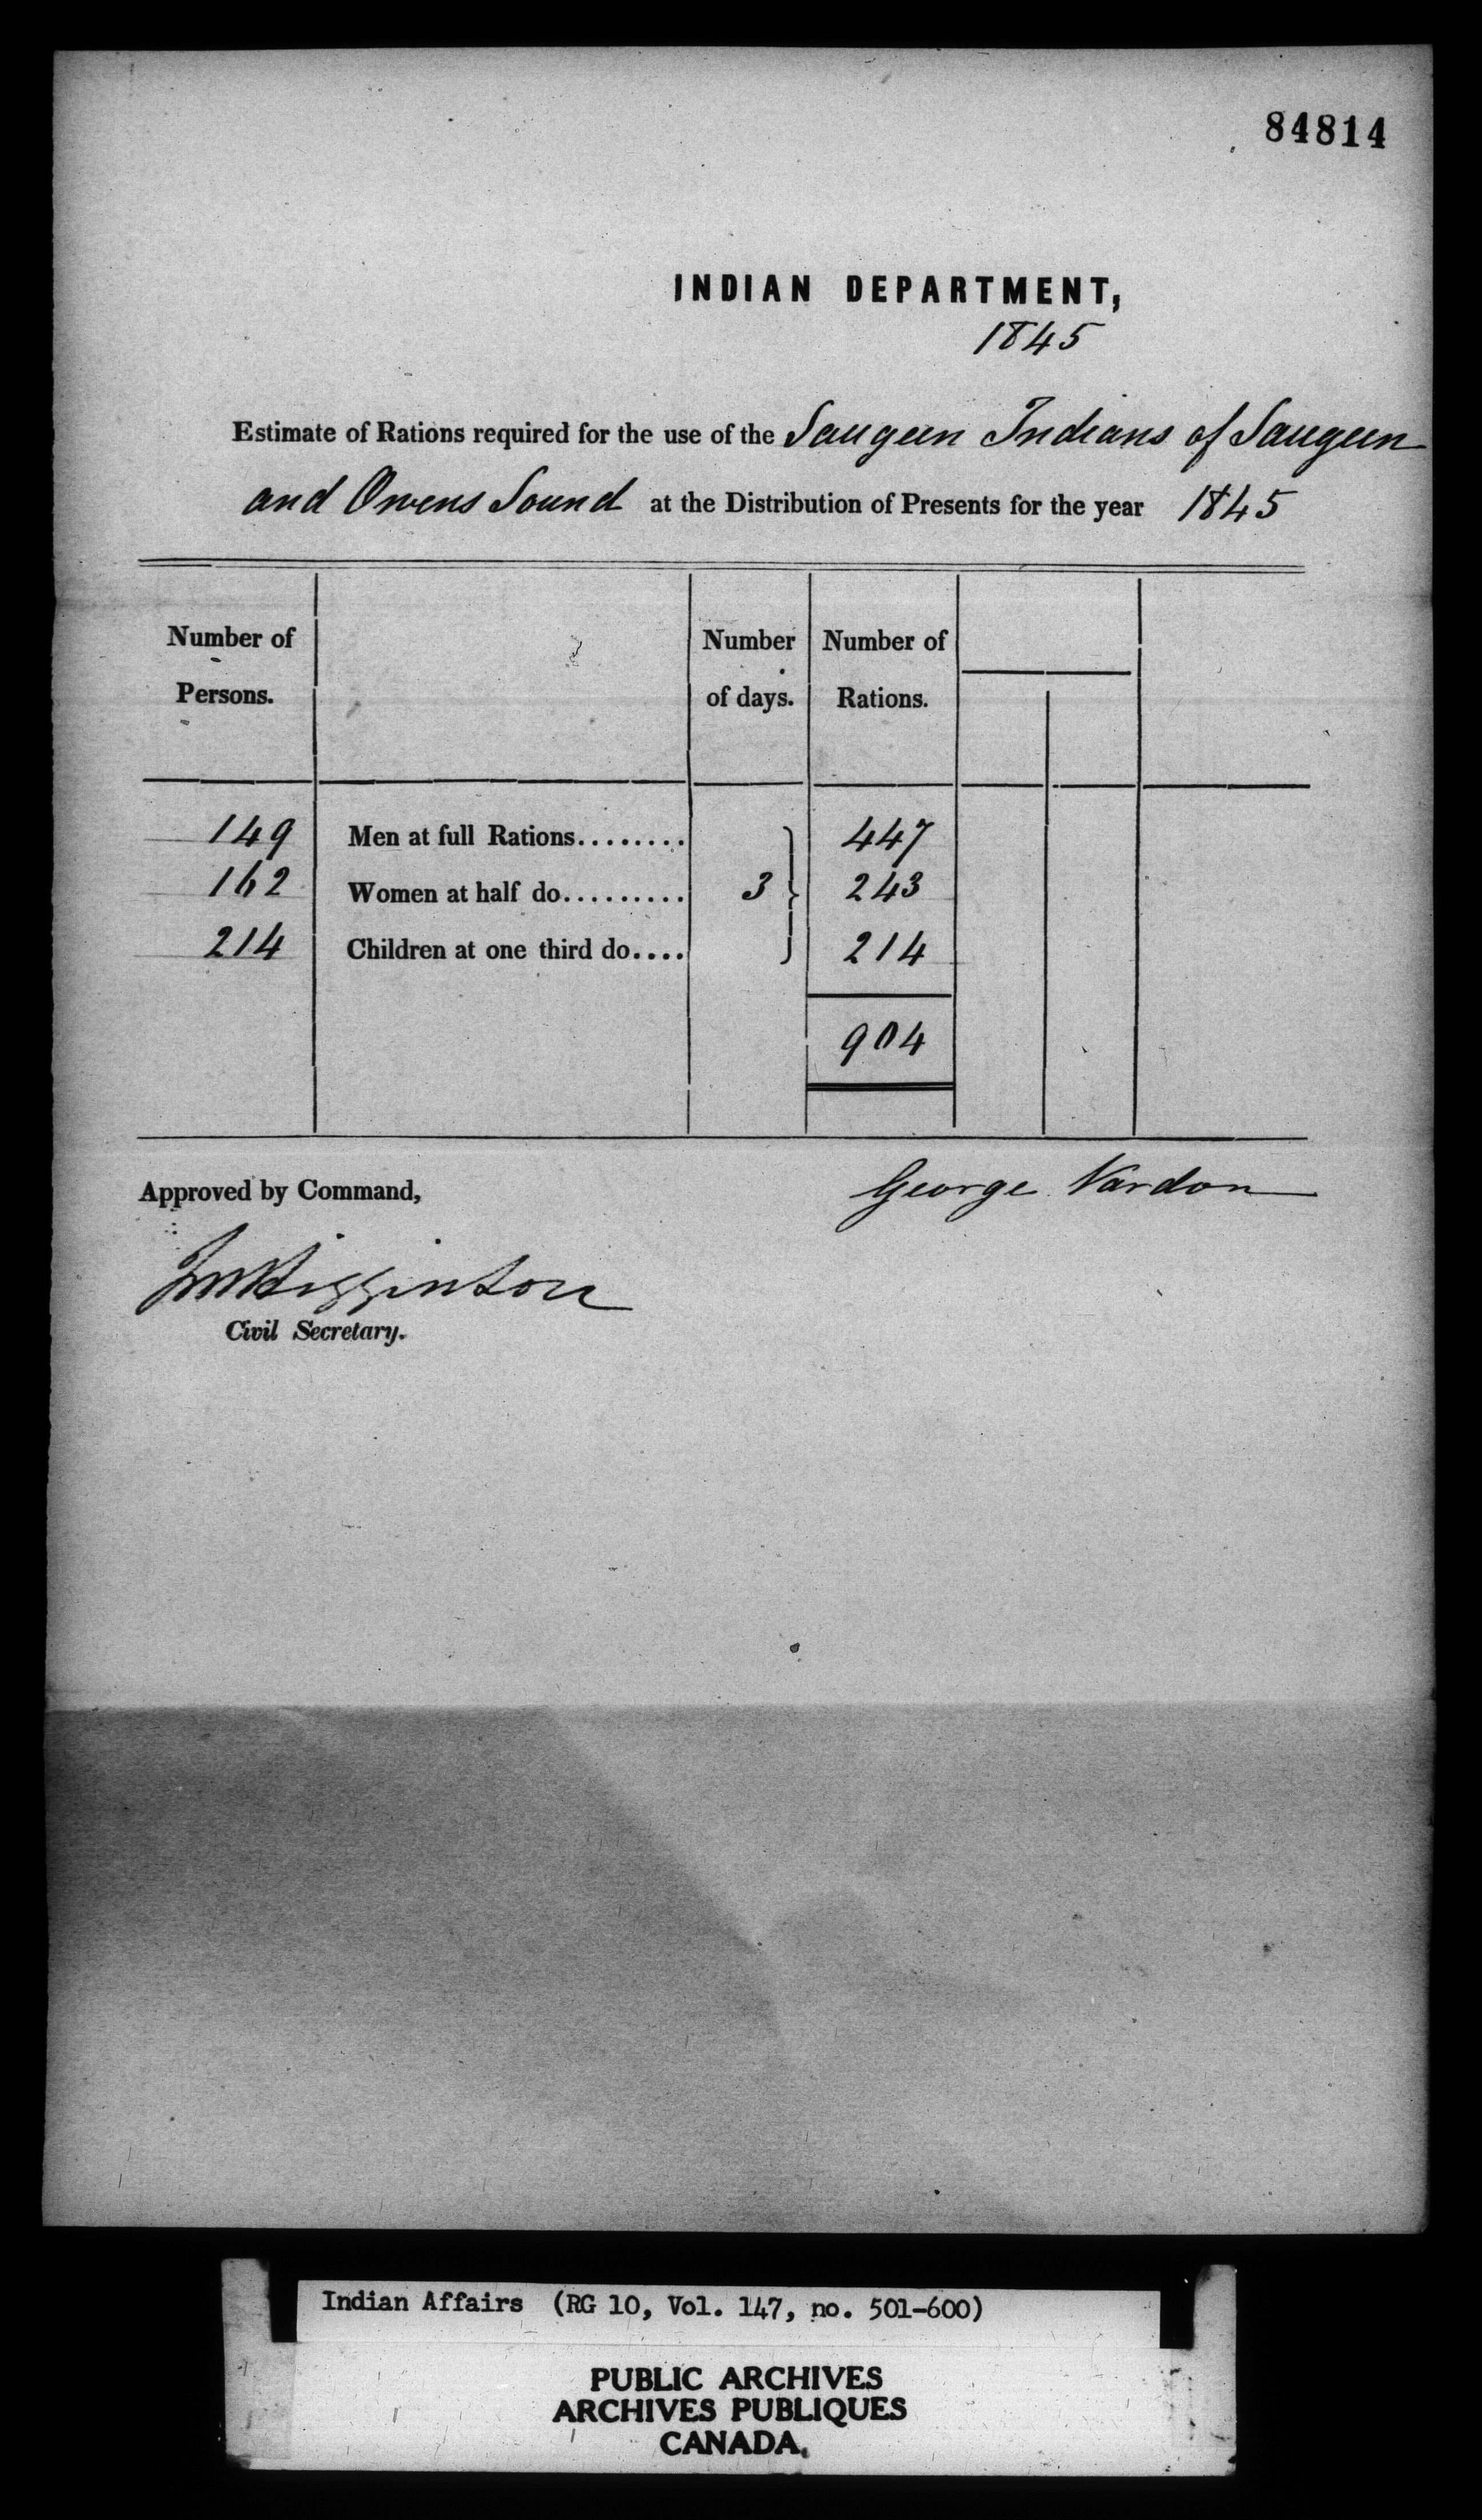 84814
INDIAN DEPARTMENT,
1845
Estimate of Rations required for the use of the Saugeen Indians of Saugeen
and Owens Sound at the Distribution of Presents for the year 1845
Number of Persons. Number of days. Number of Rations.
149 Men at full Rations........ 447
162 Women at half do......... 3 243
214 Children at one third do.... 214
904
Approved by Command, George Vardon
JMHigginson
Civil Secretary.
Indian Affairs (RG 10, Vol. 147, no. 501-600)
PUBLIC ARCHIVES
ARCHIVES PUBLIQUES
CANADA.